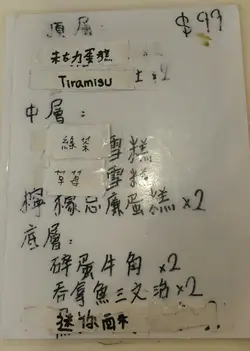 $99
頂層:
朱古力蛋糕
Tiramisu ×2
中層:
綠茶 雪糕
草莓 雪糕
檸檬忌廉蛋糕×2
底層:
碎蛋牛角 ×2
吞拿魚三文治×2
迷你